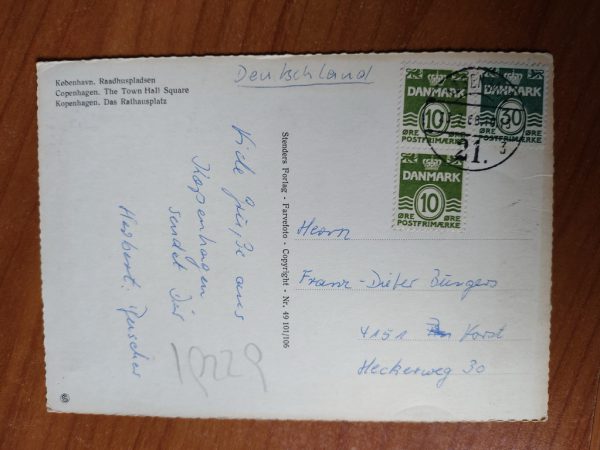 København. Raadhuspladsen
Copenhagen. The Town Hall Square
Kopenhagen. Das Rathausplatz
Deutschland
DANMARK
10
ØRE
ØRE
POSTFRIMÆRKE
DANMARK
30
ØRE
POSTFRIMÆRKE
DANMARK
10
ØRE
ØRE
POSTFRIMÆRKE
21.
3
Viele Grüße aus
Kopenhagen
sendet Dir
Herbert
Stenders Forlag - Farvefoto - Copyright - Nr. 49 101/106
Herrn
Franz-Dieter Bürgers
4151 Vorst
Heckerweg 30
19229